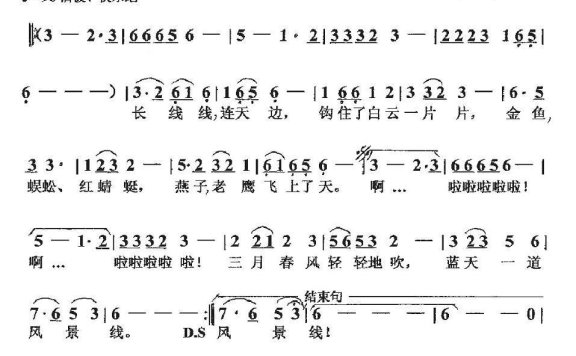 (3 — 2·3|6665 6 —|5 — 1·2|3332 3 —|2223 165|
6 — — —)|3·2 61 6|165 6 —|1 66 1 2|3 32 3 —|6·5
长 线 线,连天 边, 钩 住了白云一片 片, 金 鱼,
3 3·|123 2 —|5·2 32 1|61 65 6 —|3 — 2·3|66656 —|
蜈蚣、红蜻 蜓, 燕子,老 鹰飞上了天。 啊… 啦啦啦啦啦!
5 — 1·2|3332 3 —|2 21 2 3|5653 2 —|3 23 5 6|
啊… 啦啦啦啦 啦! 三月 春风轻轻地吹, 蓝天 一道
结束句
7·6 5 3|6 — — —:‖7·6 5 3|6 — — —|6 — — 0|
风 景 线。 D.S 风 景 线!